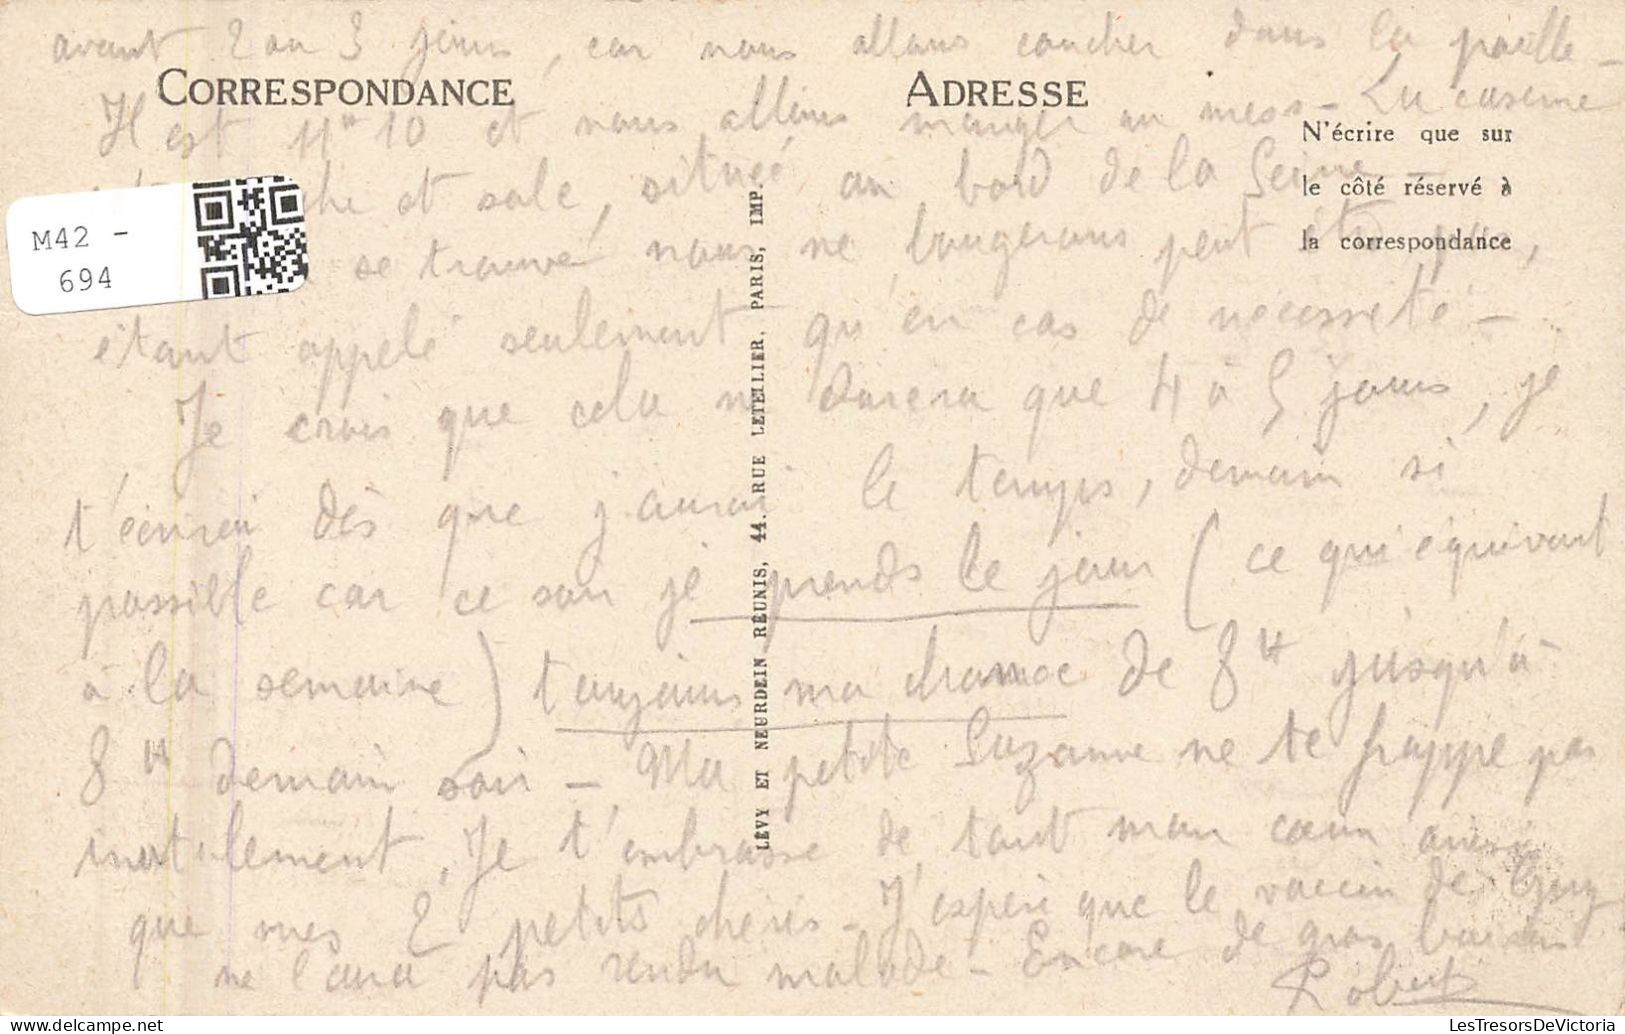 avant 2 ou 3 jours, car nous allons coucher dans la paille -
CORRESPONDANCE
ADRESSE
Il est 11H 10 et nous allons manger au mess - La caserne
N'écrire que sur
le côté réservé à
la correspondance
et sale, située au bord de la Seine -
M42 -
694
se trouve nous ne bougerons peut être pas,
étant appelé seulement qu'en cas de nécessité -
Je crois que cela ne durera que 4 à 5 jours, je
t'écrirai dès que j'aurai le temps, demain si
possible car ce soir je prends le jour (ce qui équivaut
à la semaine) toujours ma chance de 8H jusqu'à
8H demain soir - Ma petite Suzanne ne te frappe pas
inutilement, Je t'embrasse de tout mon cœur ainsi
que mes 2 petits chéris - J'espère que le vaccin de Guy
ne l'aura pas rendu malade - Encore de gros baisers
Robert
LÉVY ET NEURDEIN RÉUNIS, 44. RUE LETELLIER, PARIS, IMP.
LesTresorsDeVictoria